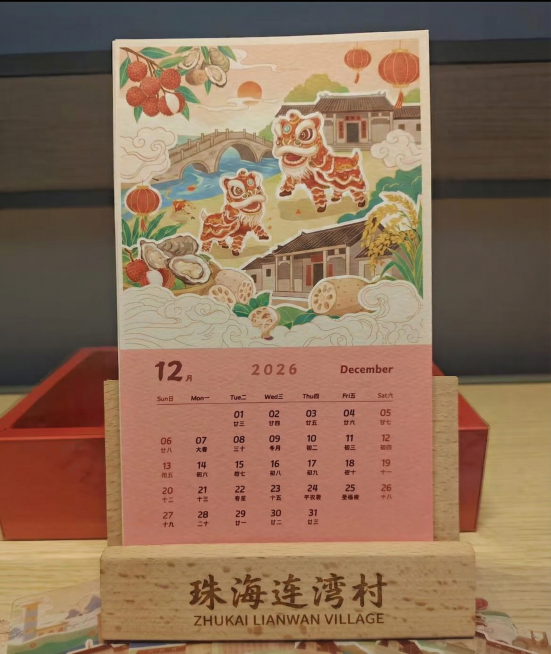 12月 2026 December
Sun日 Mon一 Tue二 Wed三 Thu四 Fri五 Sat六
01 02 03 04 05
廿三 廿四 廿五 廿六 廿七
06 07 08 09 10 11 12
廿八 大雪 三十 冬月 初二 初三 初四
13 14 15 16 17 18 19
初五 初六 初七 初八 初九 初十 十一
20 21 22 23 24 25 26
十二 十三 十五 平安夜 十八
27 28 29 30 31
十九 二十 廿一 廿二 廿三
珠海连湾村
ZHUKAI LIANWAN VILLAGE